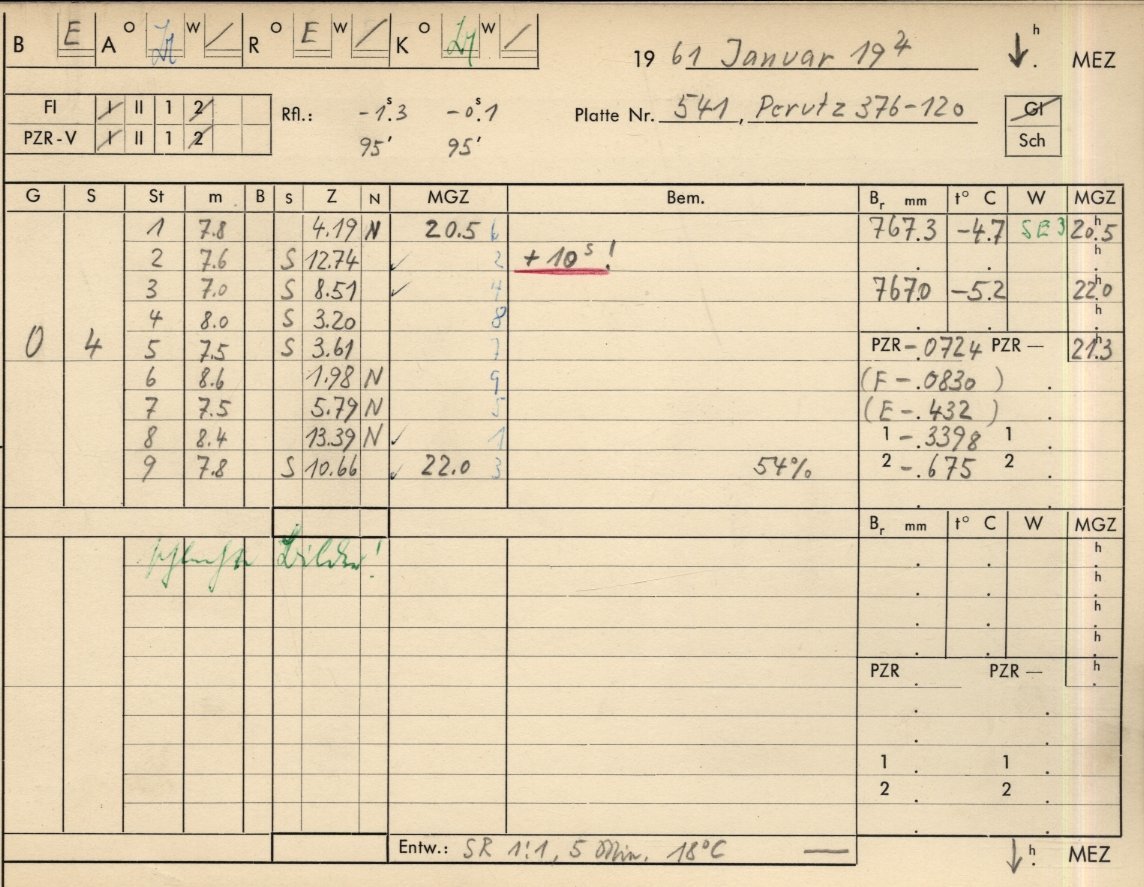 B E A o w R o E w K o w h
19 61 Januar 19 . MEZ
FI I II 1 2 Rfl.: -1.s3 -0.s1 Platte Nr. 541, Perutz 376-120 Gl
PZR-V I II 1 2 95' 95' Sch
G S St m B S Z N MGZ Bem. Br mm t° C W MGZ
1 7.8 4.19 N 20.5 6 767.3 -4.7 SE3 20h.5
2 7.6 S 12.74 ✓ 2 +10s! h
3 7.0 S 8.51 ✓ 4 767.0 -5.2 22h.0
4 8.0 S 3.20 8 h
0 4 5 7.5 S 3.61 7 PZR -.0724 PZR — 21h.3
6 8.6 1.98 N 9 (F -.0830 )
7 7.5 5.79 N 5 (E -.432 )
8 8.4 13.39 N ✓ 1 1 -.3398 1
9 7.8 S 10.66 ✓ 22.0 3 54% 2 -.675 2
Br mm t° C W MGZ
schlechte Bilder! h
h
h
h
PZR PZR — h
1 1
2 2
Entw.: SR 1:1, 5 Min. 18°C — h MEZ